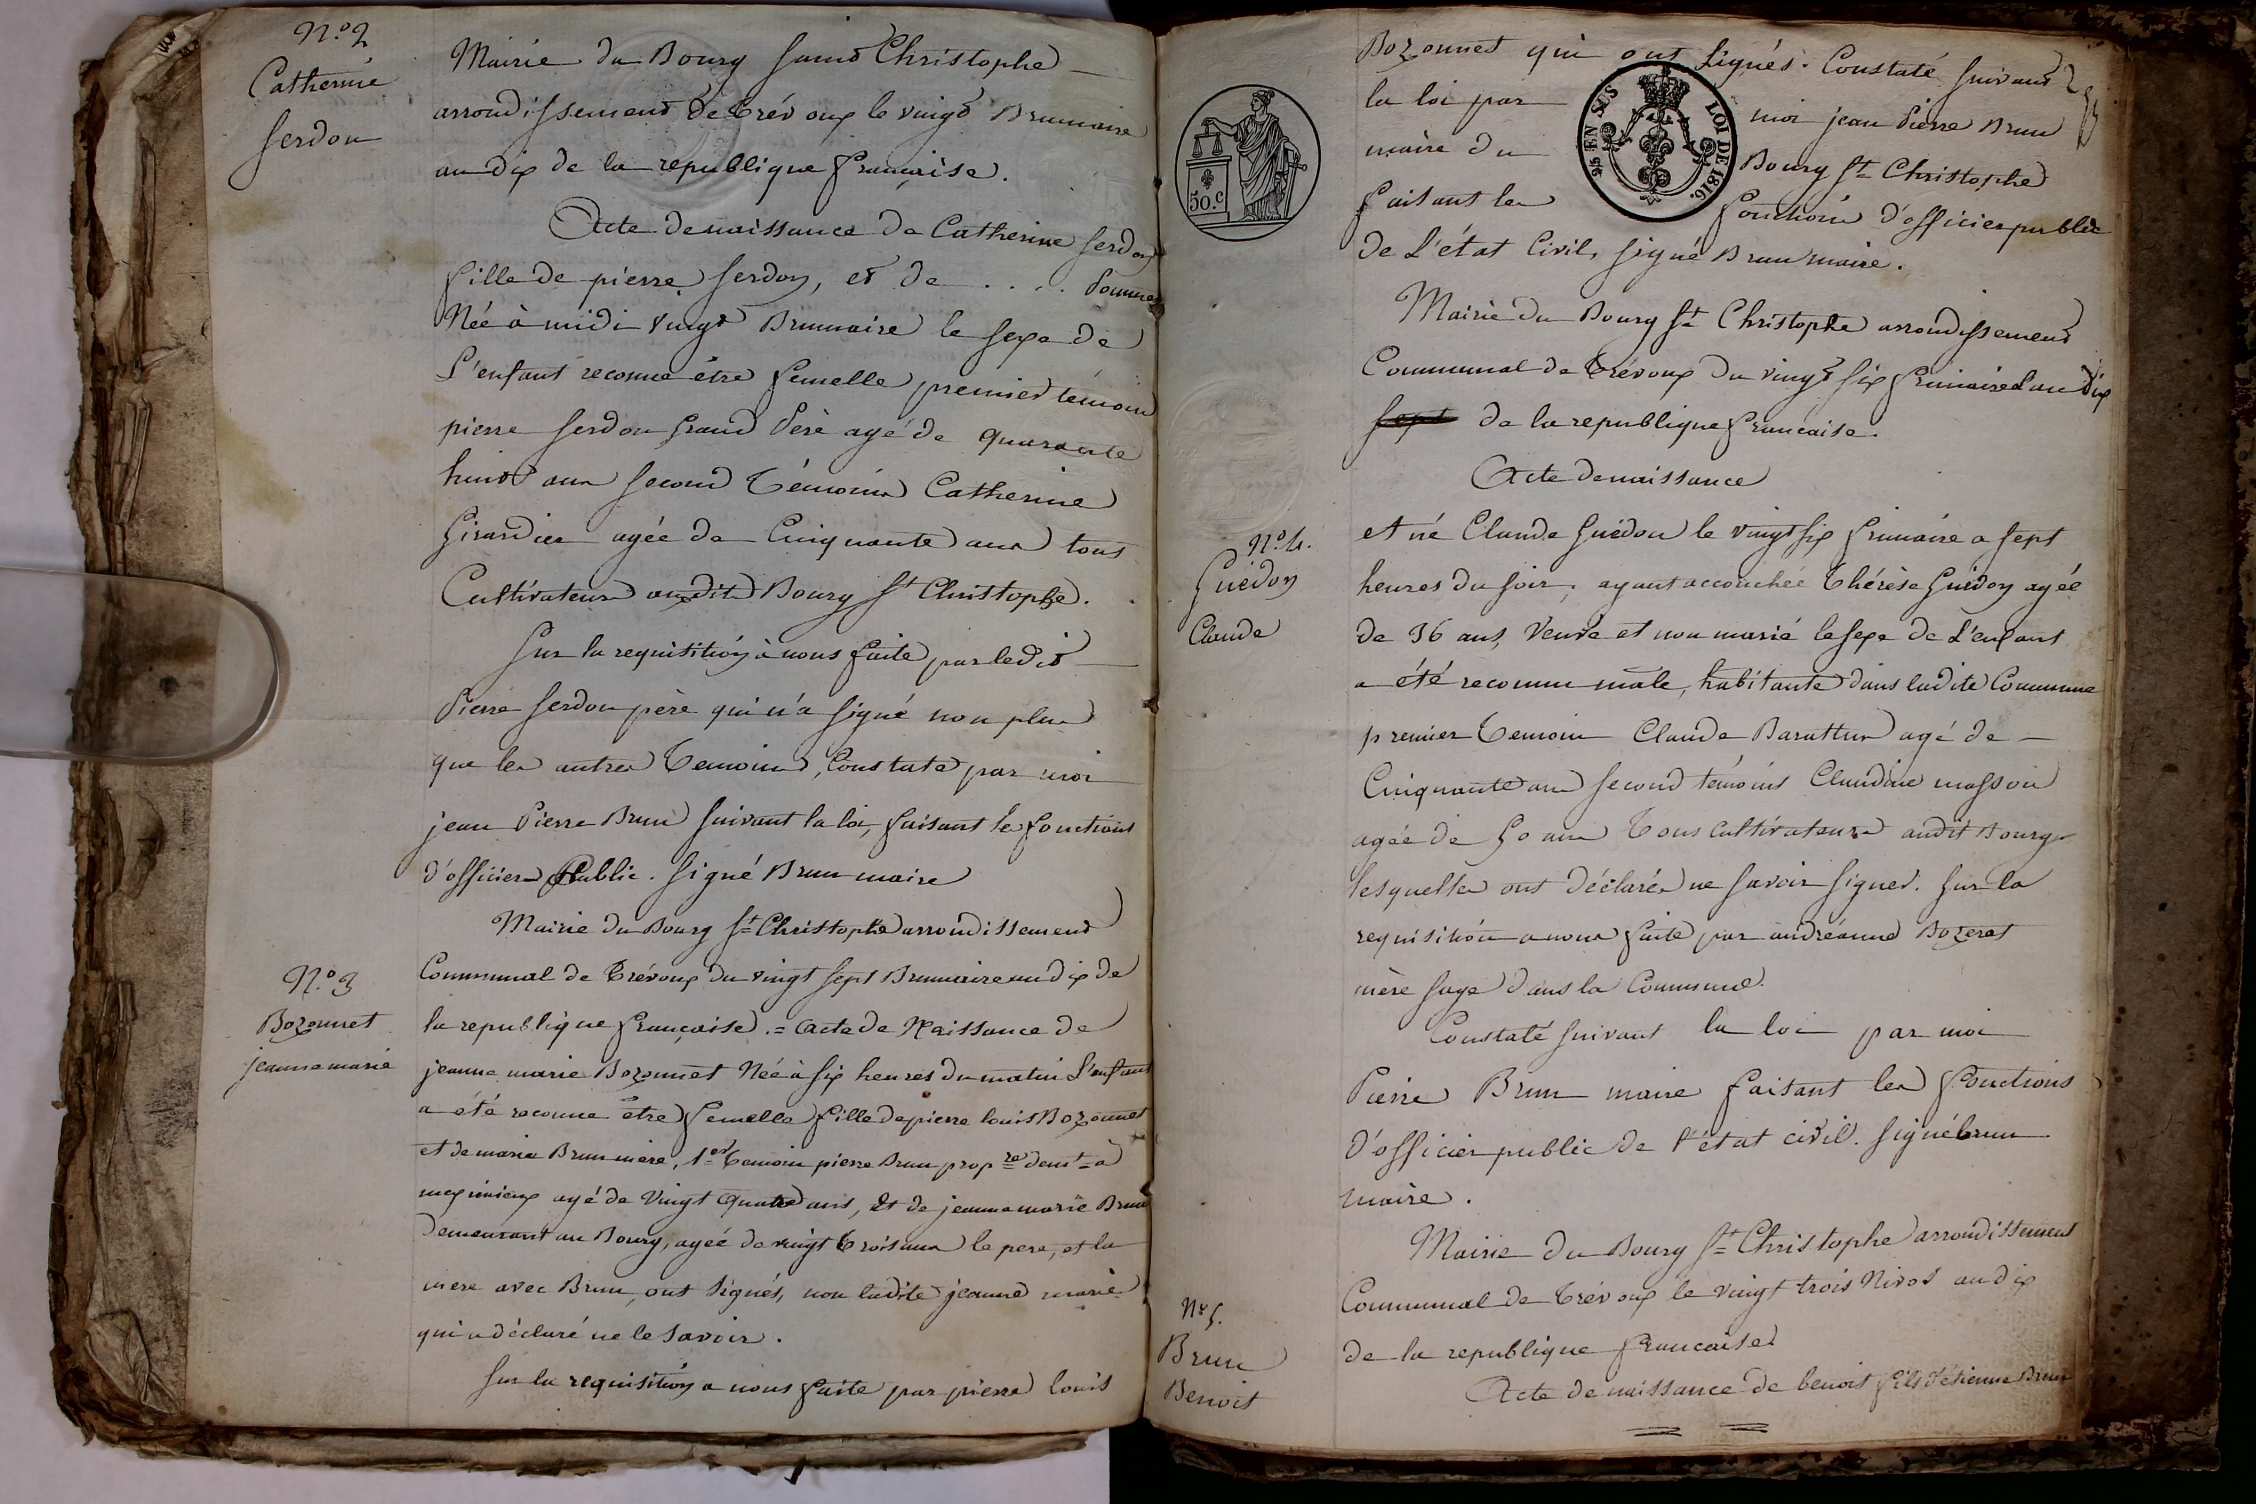 N.o 2
Catherine
Serdon
Mairie du Bourg Saint Christophe
arrondissement de Trévoux le vingt Brumaire
an dix de la republique française.
Acte de naissance de Catherine Serdon
fille de pierre Serdon, et de . . . .
Née à midi vingt Brumaire le sexe de
L'enfant reconnu être femelle premier témoin
pierre Serdon Grand Père agé de quarante
huit ans second Témoins Catherine
Girardier agée de Cinquante ans tous
Cultivateurs audit Bourg St Christophe.
Sur la requisition à nous faite par le dit
Pierre Serdon père qui n'a signé non plus
que les autres Temoins, Constate par moi
jean Pierre Brun suivant la loi, faisant les fonctions
d'officier Public. Signé Brun maire
N.o 3
Bozonnet
jeanne marie
Mairie du Bourg St Christophe arrondissement
Communal de Trévoux du vingt sept Brumaire an dix de
la republique française. = Acte de Naissance de
jeanne marie Bozonnet Née à six heures du matin L'enfant
a été reconnu être femelle fille de pierre louis Bozonnet
et de marie Brun mère, 1er Temoin pierre Brun propre demt a
meximieux agé de Vingt quatre ans, et de jeanne marie Brun
demeurant au Bourg, agée de vingt trois ans le pere, et la
mere avec Brun, ont signés, non ladite jeanne marie
qui a déclaré ne le savoir.
Sur la requisition a nous faite par pierre louis
Bozonnet qui ont signés. Constaté suivant
la loi par moi jean Pierre Brun
maire du Bourg St Christophe
faisant les fonctions d'officier public
de L'état Civil, signé Brun maire.
50.c
25 EN SUS LOI DE 1816.
Mairie du Bourg St Christophe arrondissement
Communal de Trévoux du vingt six frimaire l'an dix
sept de la republique française.
Acte de naissance
N.o 4.
Guédon
Claude
et né Claude Guédon le vingt six frimaire a sept
heures du soir, ayant accouchée Thérèse Guédon agée
de 36 ans, Veuve et non marié le sexe de L'enfant
a été reconnu mâle, habitante dans ladite Commune
premier Temoin Claude Barattur agé de
Cinquante ans second témoins Claudine masson
agée de 50 ans Tous Cultivateurs audit Bourg
lesquelles ont déclarés ne savoir signer. Sur la
requisition a nous faite par andréanne Bozerat
mère sage dans la Commune.
Constaté suivant la loi par moi
Pierre Brun maire faisant les fonctions
d'officier public de l'état civil. signé brun
maire.
N.o 5.
Brun
Benoit
Mairie du Bourg St Christophe arrondissement
Communal de Trévoux le vingt trois Nivos an dix
de la republique francaise
Acte de naissance de benoit fils d'étienne Brun